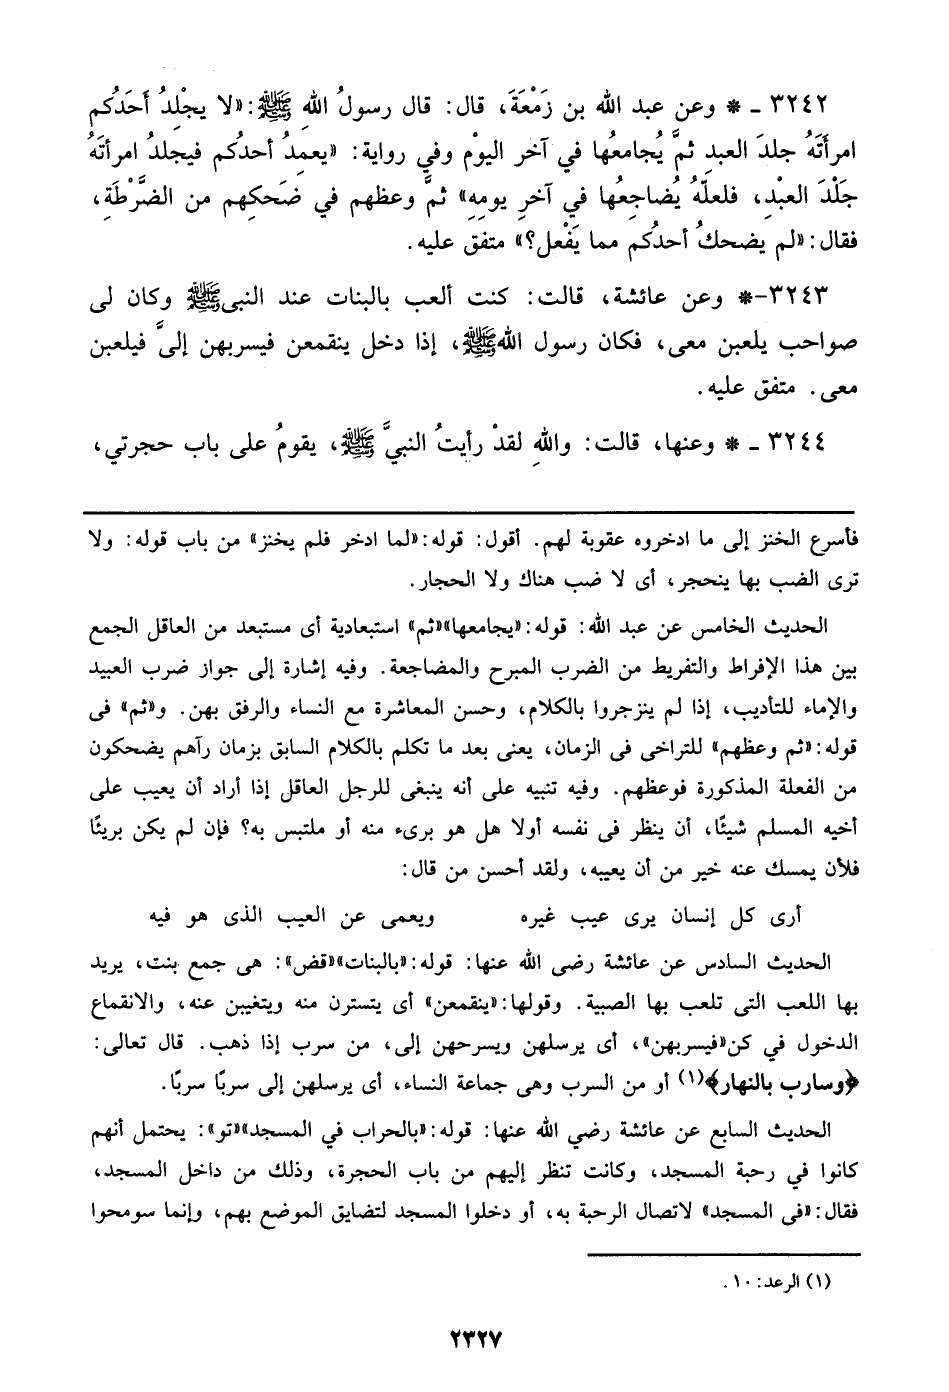 ٣٢٤٢ ـ * وعن عبد الله بن زَمْعَةَ، قال: قال رسولُ اللهِ ﷺ: «لا يجْلِدُ أَحَدُكم
امرأَتَهُ جلدَ العبدِ ثمَّ يُجامعُها في آخر اليوْم وفي رواية: «يعمِدُ أحدُكم فيجلدُ امرأتَهُ
جَلْدَ العبْدِ، فلعلّهُ يُضاجِعُها في آخرِ يومِهِ» ثمَّ وعظهم في ضَحكِهم من الضَّرْطَةِ،
فقال: «لم يضحكُ أحدُكم مما يَفْعل؟» متفق عليه.
٣٢٤٣-* وعن عائشة، قالت: كنت ألعب بالبنات عند النبى ﷺ وكان لى
صواحب يلعبن معى، فكان رسول الله ﷺ، إذا دخل ينقمعن فيسربهن إلىَّ فيلعبن
معى. متفق عليه.
٣٢٤٤ ـ * وعنها، قالت: واللهِ لقدْ رأيتُ النبيَّ ﷺ، يقومُ على باب حجرتي،
فأسرع الخنز إلى ما ادخروه عقوبة لهم. أقول: قوله: «لما ادخر فلم يخنز» من باب قوله: ولا
ترى الضب بها ينحجر، أى لا ضب هناك ولا الحجار.
الحديث الخامس عن عبد الله: قوله: «يجامعها»«ثم» استبعادية أى مستبعد من العاقل الجمع
بين هذا الإفراط والتفريط من الضرب المبرح والمضاجعة. وفيه إشارة إلى جواز ضرب العبيد
والإماء للتأديب، إذا لم ينزجروا بالكلام، وحسن المعاشرة مع النساء والرفق بهن. و«ثم» فى
قوله: «ثم وعظهم» للتراخى فى الزمان، يعنى بعد ما تكلم بالكلام السابق بزمان رآهم يضحكون
من الفعلة المذكورة فوعظهم. وفيه تنبيه على أنه ينبغى للرجل العاقل إذا أراد أن يعيب على
أخيه المسلم شيئًا، أن ينظر فى نفسه أولا هل هو برىء منه أو ملتبس به؟ فإن لم يكن بريئًا
فلأن يمسك عنه خير من أن يعيبه، ولقد أحسن من قال:
أرى كل إنسان يرى عيب غيره ويعمى عن العيب الذى هو فيه
الحديث السادس عن عائشة رضى الله عنها: قوله: «بالبنات»«قض»: هى جمع بنت، يريد
بها اللعب التى تلعب بها الصبية. وقولها: «ينقمعن» أى يتسترن منه ويتغيبن عنه، والانقماع
الدخول في كن«فيسربهن»، أى يرسلهن ويسرحهن إلى، من سرب إذا ذهب. قال تعالى:
﴿وسارب بالنهار﴾(١) أو من السرب وهى جماعة النساء، أى يرسلهن إلى سربًا سربًا.
الحديث السابع عن عائشة رضي الله عنها: قوله: «بالحراب في المسجد»«تو»: يحتمل أنهم
كانوا في رحبة المسجد، وكانت تنظر إليهم من باب الحجرة، وذلك من داخل المسجد،
فقال: «فى المسجد» لاتصال الرحبة به، أو دخلوا المسجد لتضايق الموضع بهم، وإنما سومحوا
(١) الرعد: ١٠.
٢٣٢٧